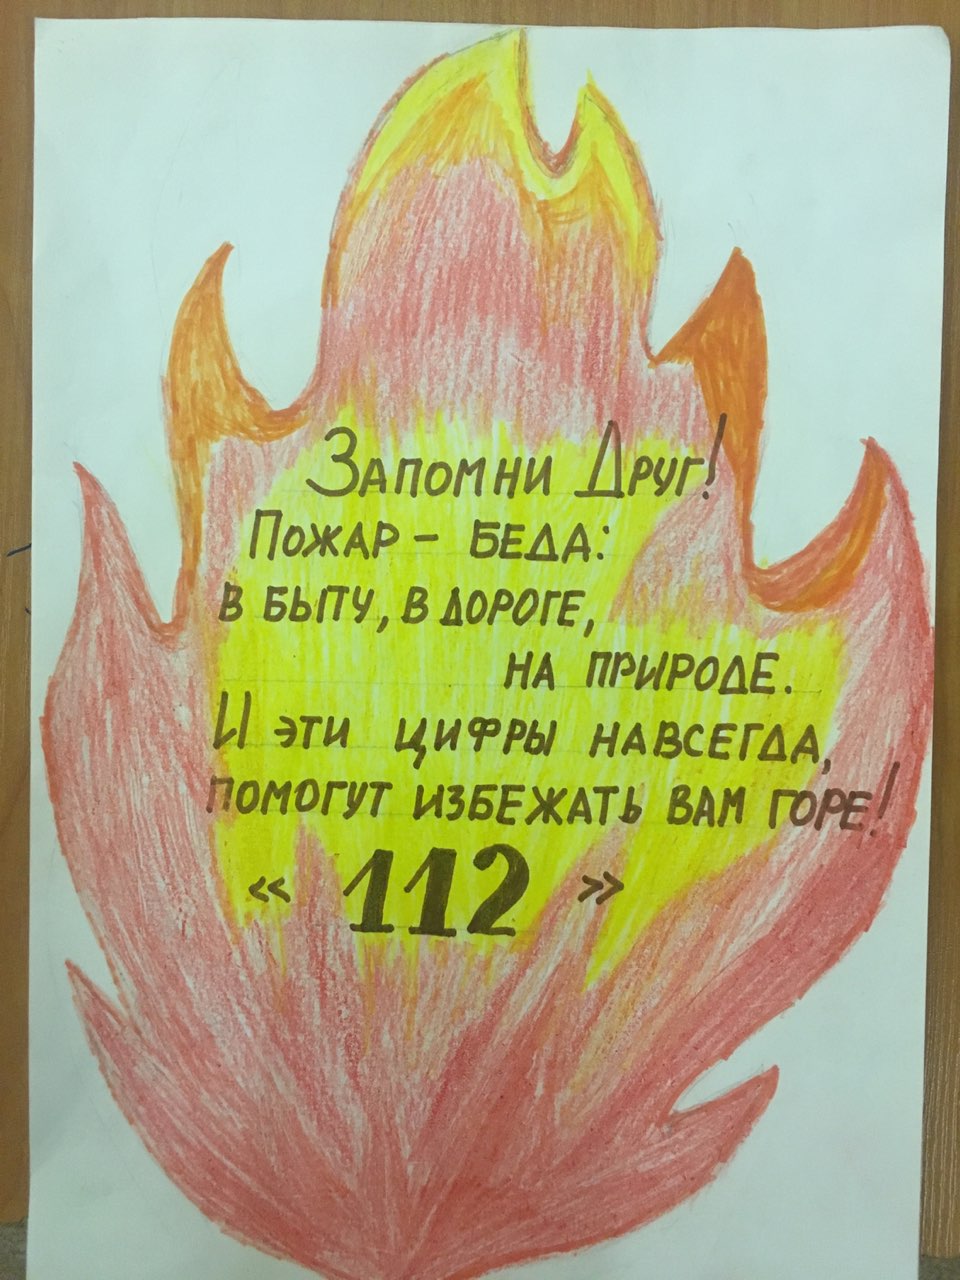 Запомни Друг!
Пожар – беда:
в быту, в дороге,
на природе.
И эти цифры навсегда,
помогут избежать вам горе!
« 112 »